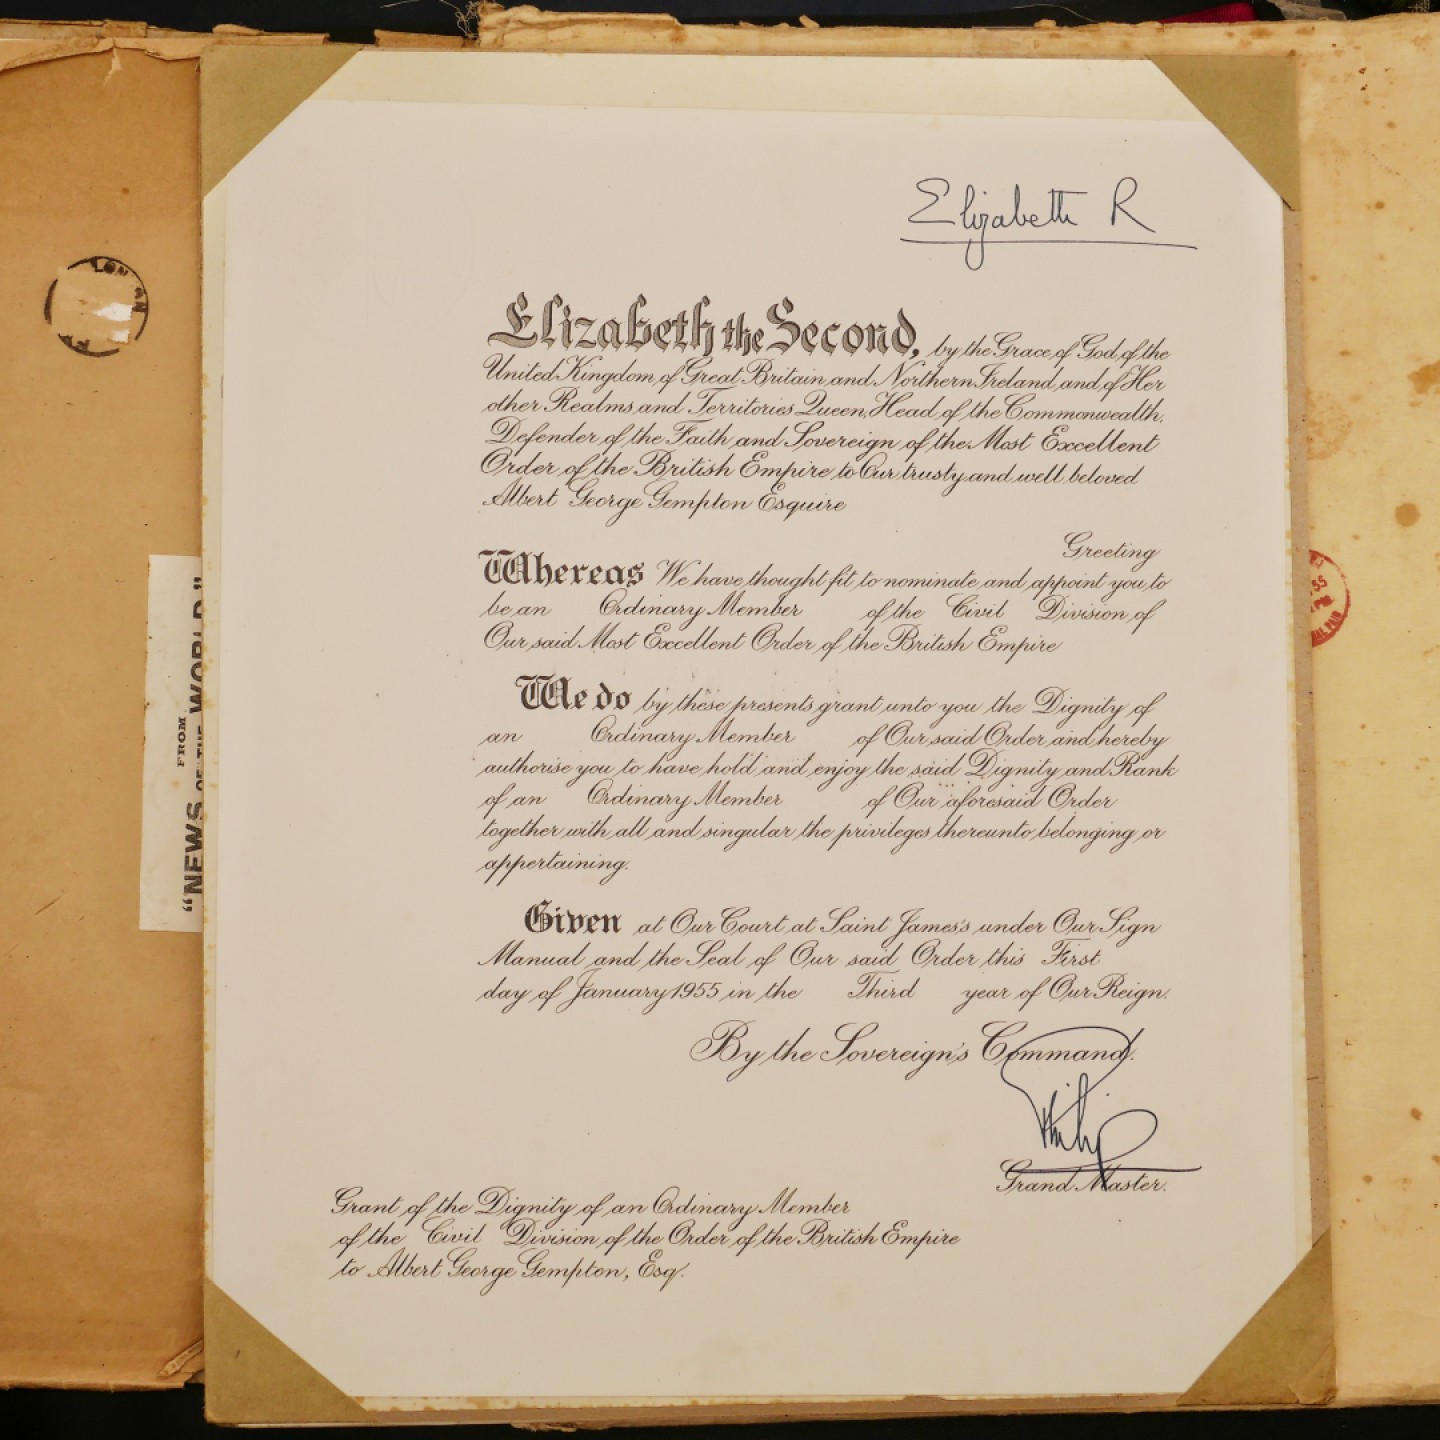 Elizabeth R
Elizabeth the Second, by the Grace of God, of the
United Kingdom of Great Britain and Northern Ireland and of Her
other Realms and Territories Queen, Head of the Commonwealth,
Defender of the Faith and Sovereign of the Most Excellent
Order of the British Empire to Our trusty and well beloved
Albert George Gempton Esquire
Greeting
Whereas We have thought fit to nominate and appoint you to
be an Ordinary Member of the Civil Division of
Our said Most Excellent Order of the British Empire
We do by these presents grant unto you the Dignity of
an Ordinary Member of Our said Order and hereby
authorise you to have hold and enjoy the said Dignity and Rank
of an Ordinary Member of Our aforesaid Order
together with all and singular the privileges thereunto belonging or
appertaining.
Given at Our Court at Saint James's under Our Sign
Manual and the Seal of Our said Order this First
day of January 1955 in the Third year of Our Reign.
By the Sovereign's Command.
Philip
Grand Master.
Grant of the Dignity of an Ordinary Member
of the Civil Division of the Order of the British Empire
to Albert George Gempton, Esq.
FROM
"NEWS OF THE WORLD"